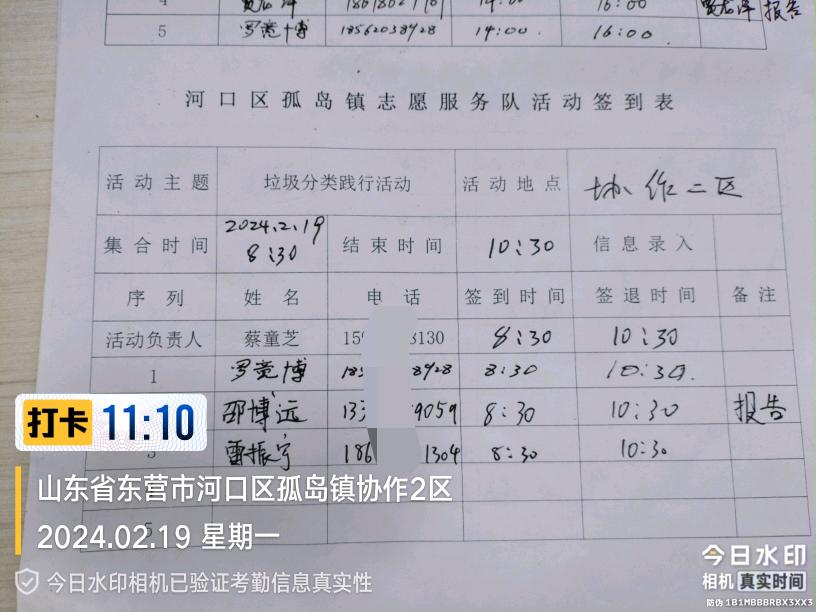 4
5 罗竞博 18562038928 14:00 16:00
报告
河口区孤岛镇志愿服务队活动签到表
活动主题 垃圾分类践行活动 活动地点 协作二区
集合时间 2024.2.19 8:30 结束时间 10:30 信息录入
序列 姓名 电话 签到时间 签退时间 备注
活动负责人 蔡童芝 159 3130 8:30 10:30
1 罗竞博 185 8928 8:30 10:30
邵博远 13 9059 8:30 10:30 报告
3 雷振宇 186 1304 8:30 10:30
5
打卡 11:10
山东省东营市河口区孤岛镇协作2区
2024.02.19 星期一
今日水印相机已验证考勤信息真实性
今日水印
相机 真实时间
防伪 1B1MBBBRBX3XX3